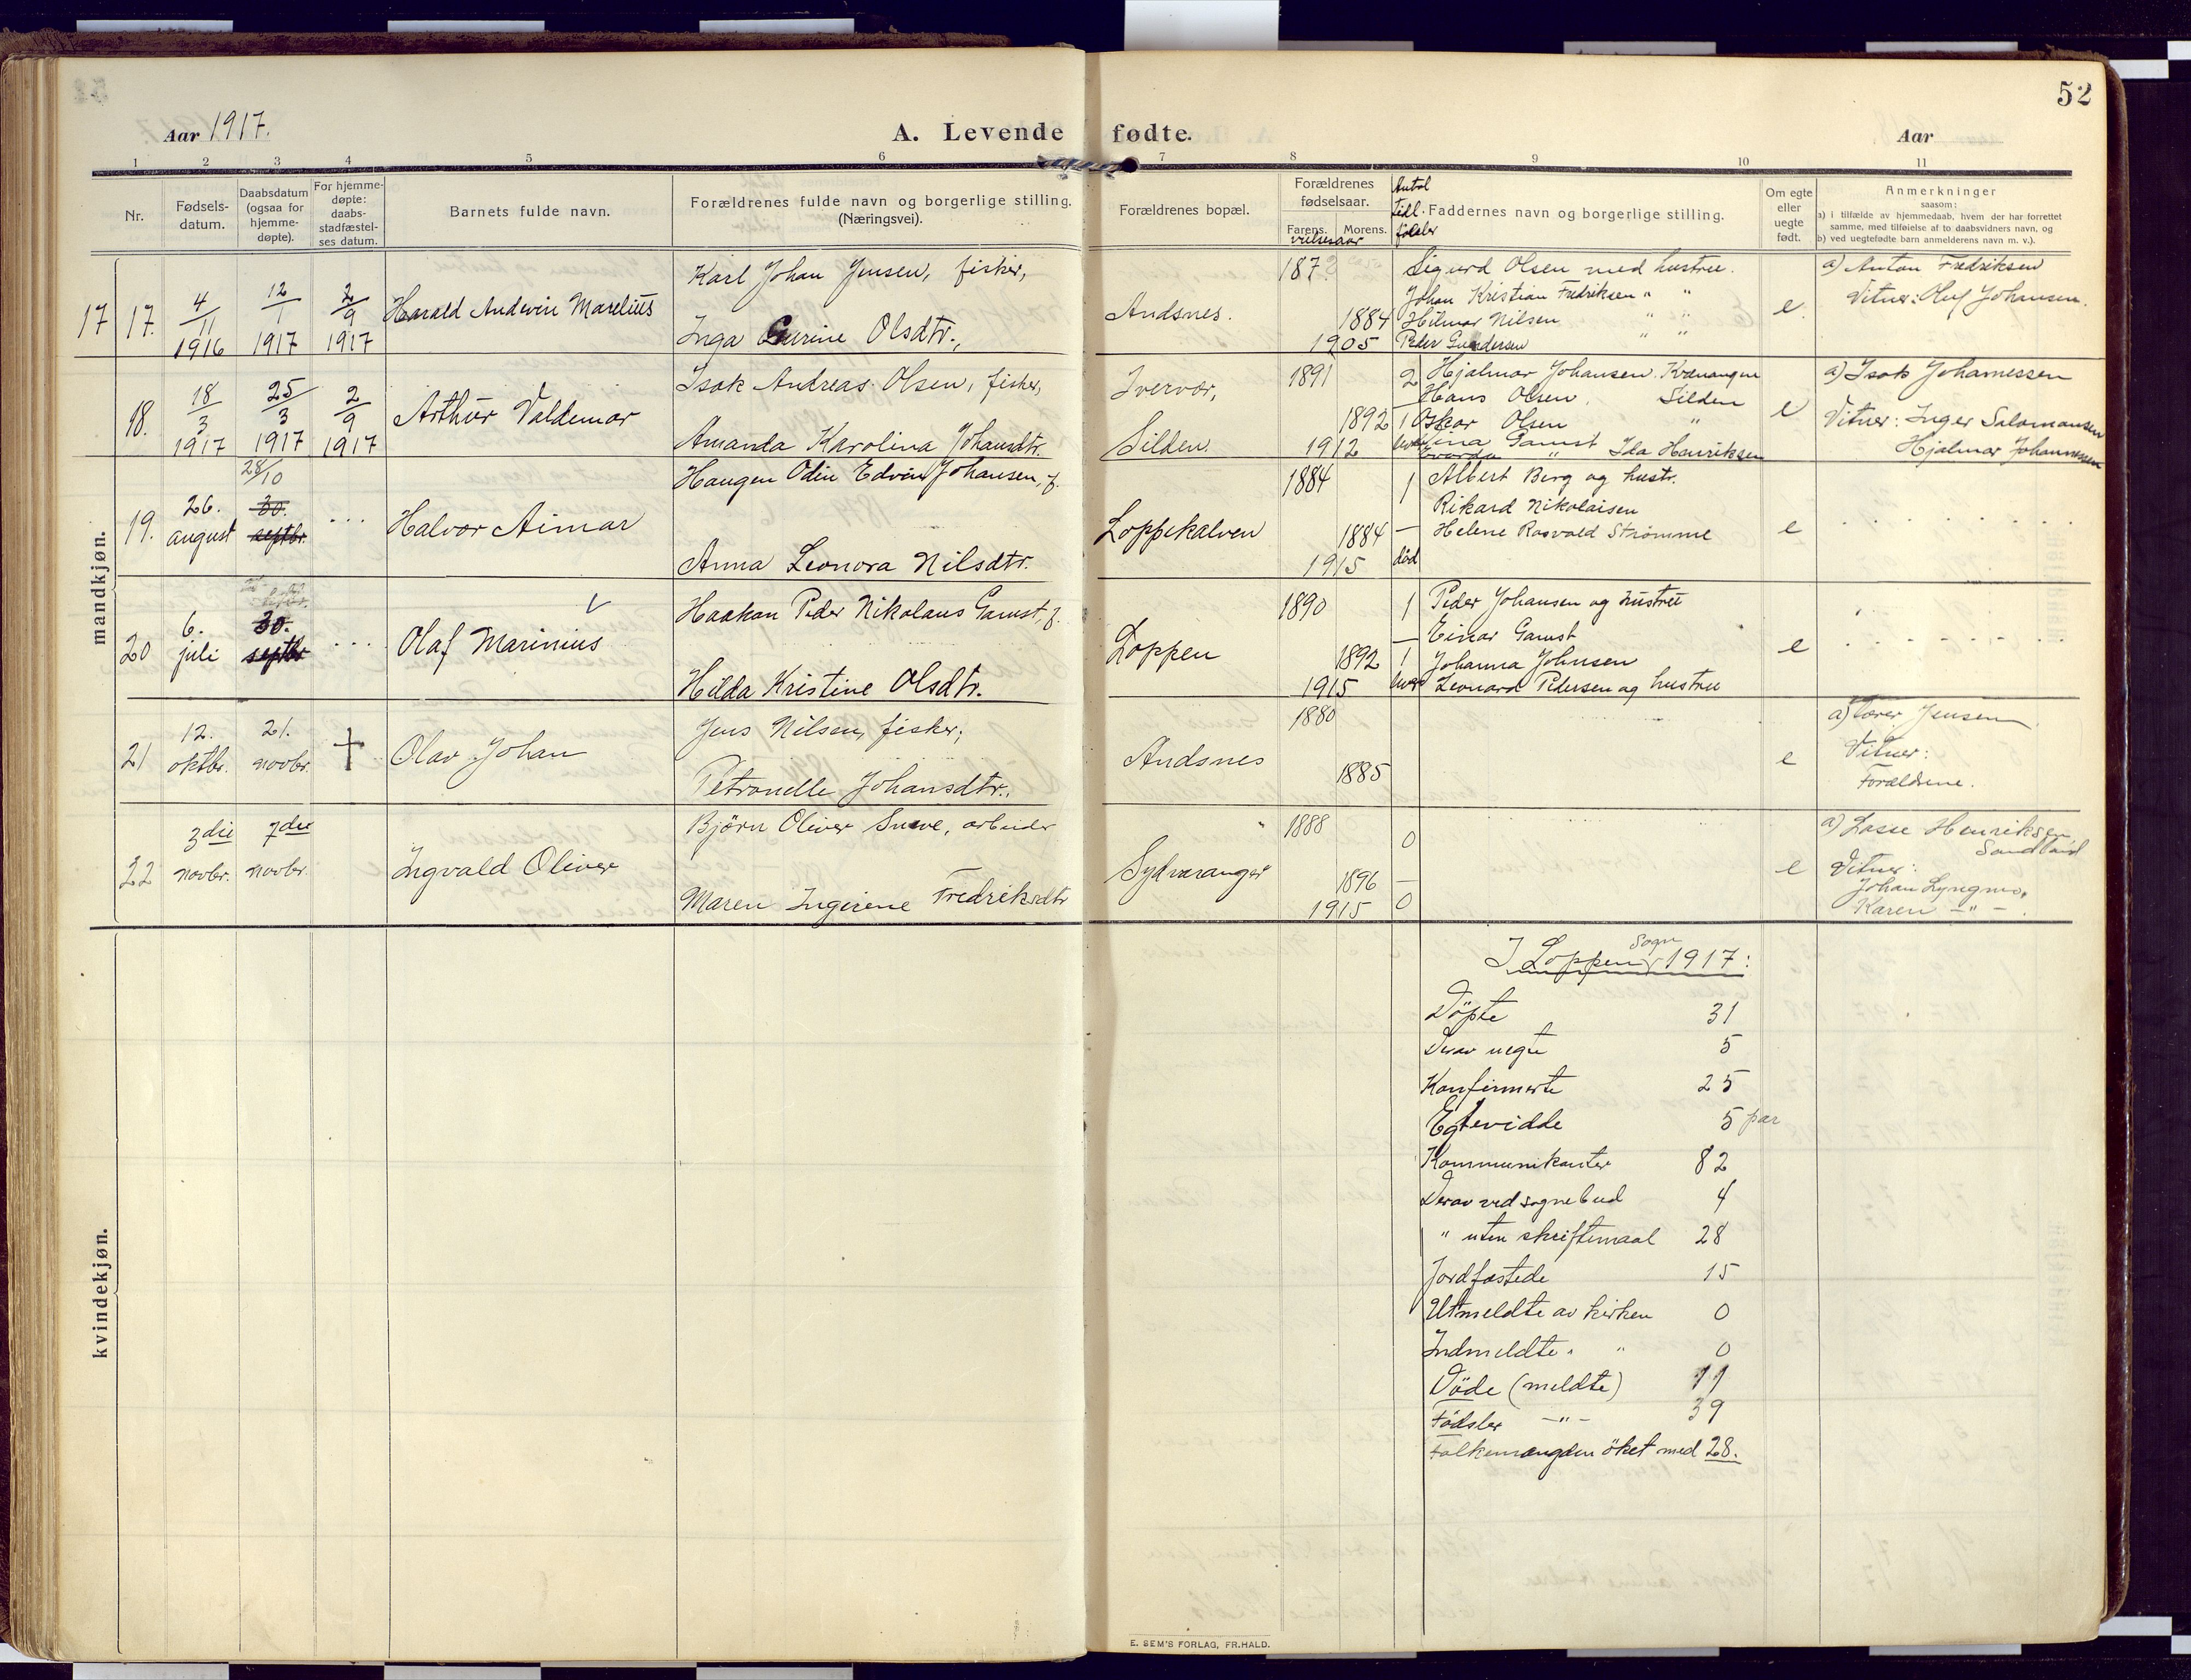 52
Aar 1917.
A. Levende fødte.
Aar
1 2 3 4 5 6 7 8 9 10 11
Nr.
Fødsels-
datum.
Daabsdatum
(ogsaa for
hjemme-
døpte).
For hjemme-
døpte:
daabs-
stadfæstel-
ses datum.
Barnets fulde navn.
Forældrenes fulde navn og borgerlige stilling.
(Næringsvei).
Forældrenes bopæl.
Forældrenes
fødselsaar.
Farens. Morens.
vielsesaar
Antal
tidl.
födsler
Faddernes navn og borgerlige stilling.
Om egte
eller
uegte
født.
Anmerkninger
saasom:
a) i tilfælde av hjemmedaab, hvem der har forrettet
samme, med tilføielse af to daabsvidners navn, og
b) ved uegtefødte barn anmelderens navn m. v.).
mandkjøn.
17 17. 4/11 1916 12/1 1917 2/9 1917
Harald Andwin Marelius
Karl Johan Jensen, fisker,
Inga Gurine Olsdtr.,
Andsnes.
187
1884
1905
Sigurd Olsen med hustru.
Johan Kristian Fredriksen " "
Hilmar Nilsen " "
Peder Gundersen " "
e.
a) Anton Fredriksen
Vitner: Oluf Johansen.
18. 18/3 1917 25/3 1917 2/9 1917
Arthur Valdemar
Isak Andreas Olsen, fisker,
Amanda Karolina Johansdtr.
Ivervær,
Silden.
1891 2
1892 1
1912
Hjalmar Johansen. Kvænangen
Hans Olsen. Silden
Oskar Olsen "
Lina Gamst Ida Henriksen
e
a) Isak Johannessen
Vitner: Inger Salomonsen
Hjalmar Johannessen
19. 26. august
28/10
30. septbr.
...
Halvor Aimar
Haugen Odin Edvin Johansen, f.
Anna Leonora Nilsdtr.
Loppekalven
1884 1
1884 —
1915 död
Albert Berg og hustr.
Rikard Nikolaisen
Helene Rosvold Strømme
e
20 6. juli
30. septbr
...
Olaf Marinius
Haakon Peder Nikolaus Gamst, f.
Hilda Kristine Olsdtr.
Loppen
1890 1
1892 1
1915
Peder Johansen og hustru
Einar Gamst
Johanna Johnsen
Leonard Pedersen og hustru
e
21 12. oktbr. 21. novbr. †
Olav Johan
Jens Nilsen, fisker,
Petronelle Johansdtr.,
Andsnes
1880
1885
e
a) Jensen
Vitner:
Forældrene.
22 3die novbr. 7die novbr.
Ingvald Oliver
Björn Oliver Sneve, arbeider
Maren Ingerene Fredriksdtr
Sydvaranger
1888 0
1896 —
1915 0
e
a) Lasse Henriksen
Sandland
Vitner:
Johan Lyngmo,
Karen —"—.
kvindekjøn.
I Loppen sogn 1917:
Döpte 31
Derav uegte 5
Konfirmerte 25
Egteviede 5 par
Kommunikanter 82
Derav ved sognebud 4
" uten skriftemaal 28
Jordfæstede 15
Utmeldte av kirken 0
Indmeldte " " 0
Döde (meldte) 11
Födsler —"— 39
Folkemængden öket med 28.
E. SEM'S FORLAG, FR.HALD.